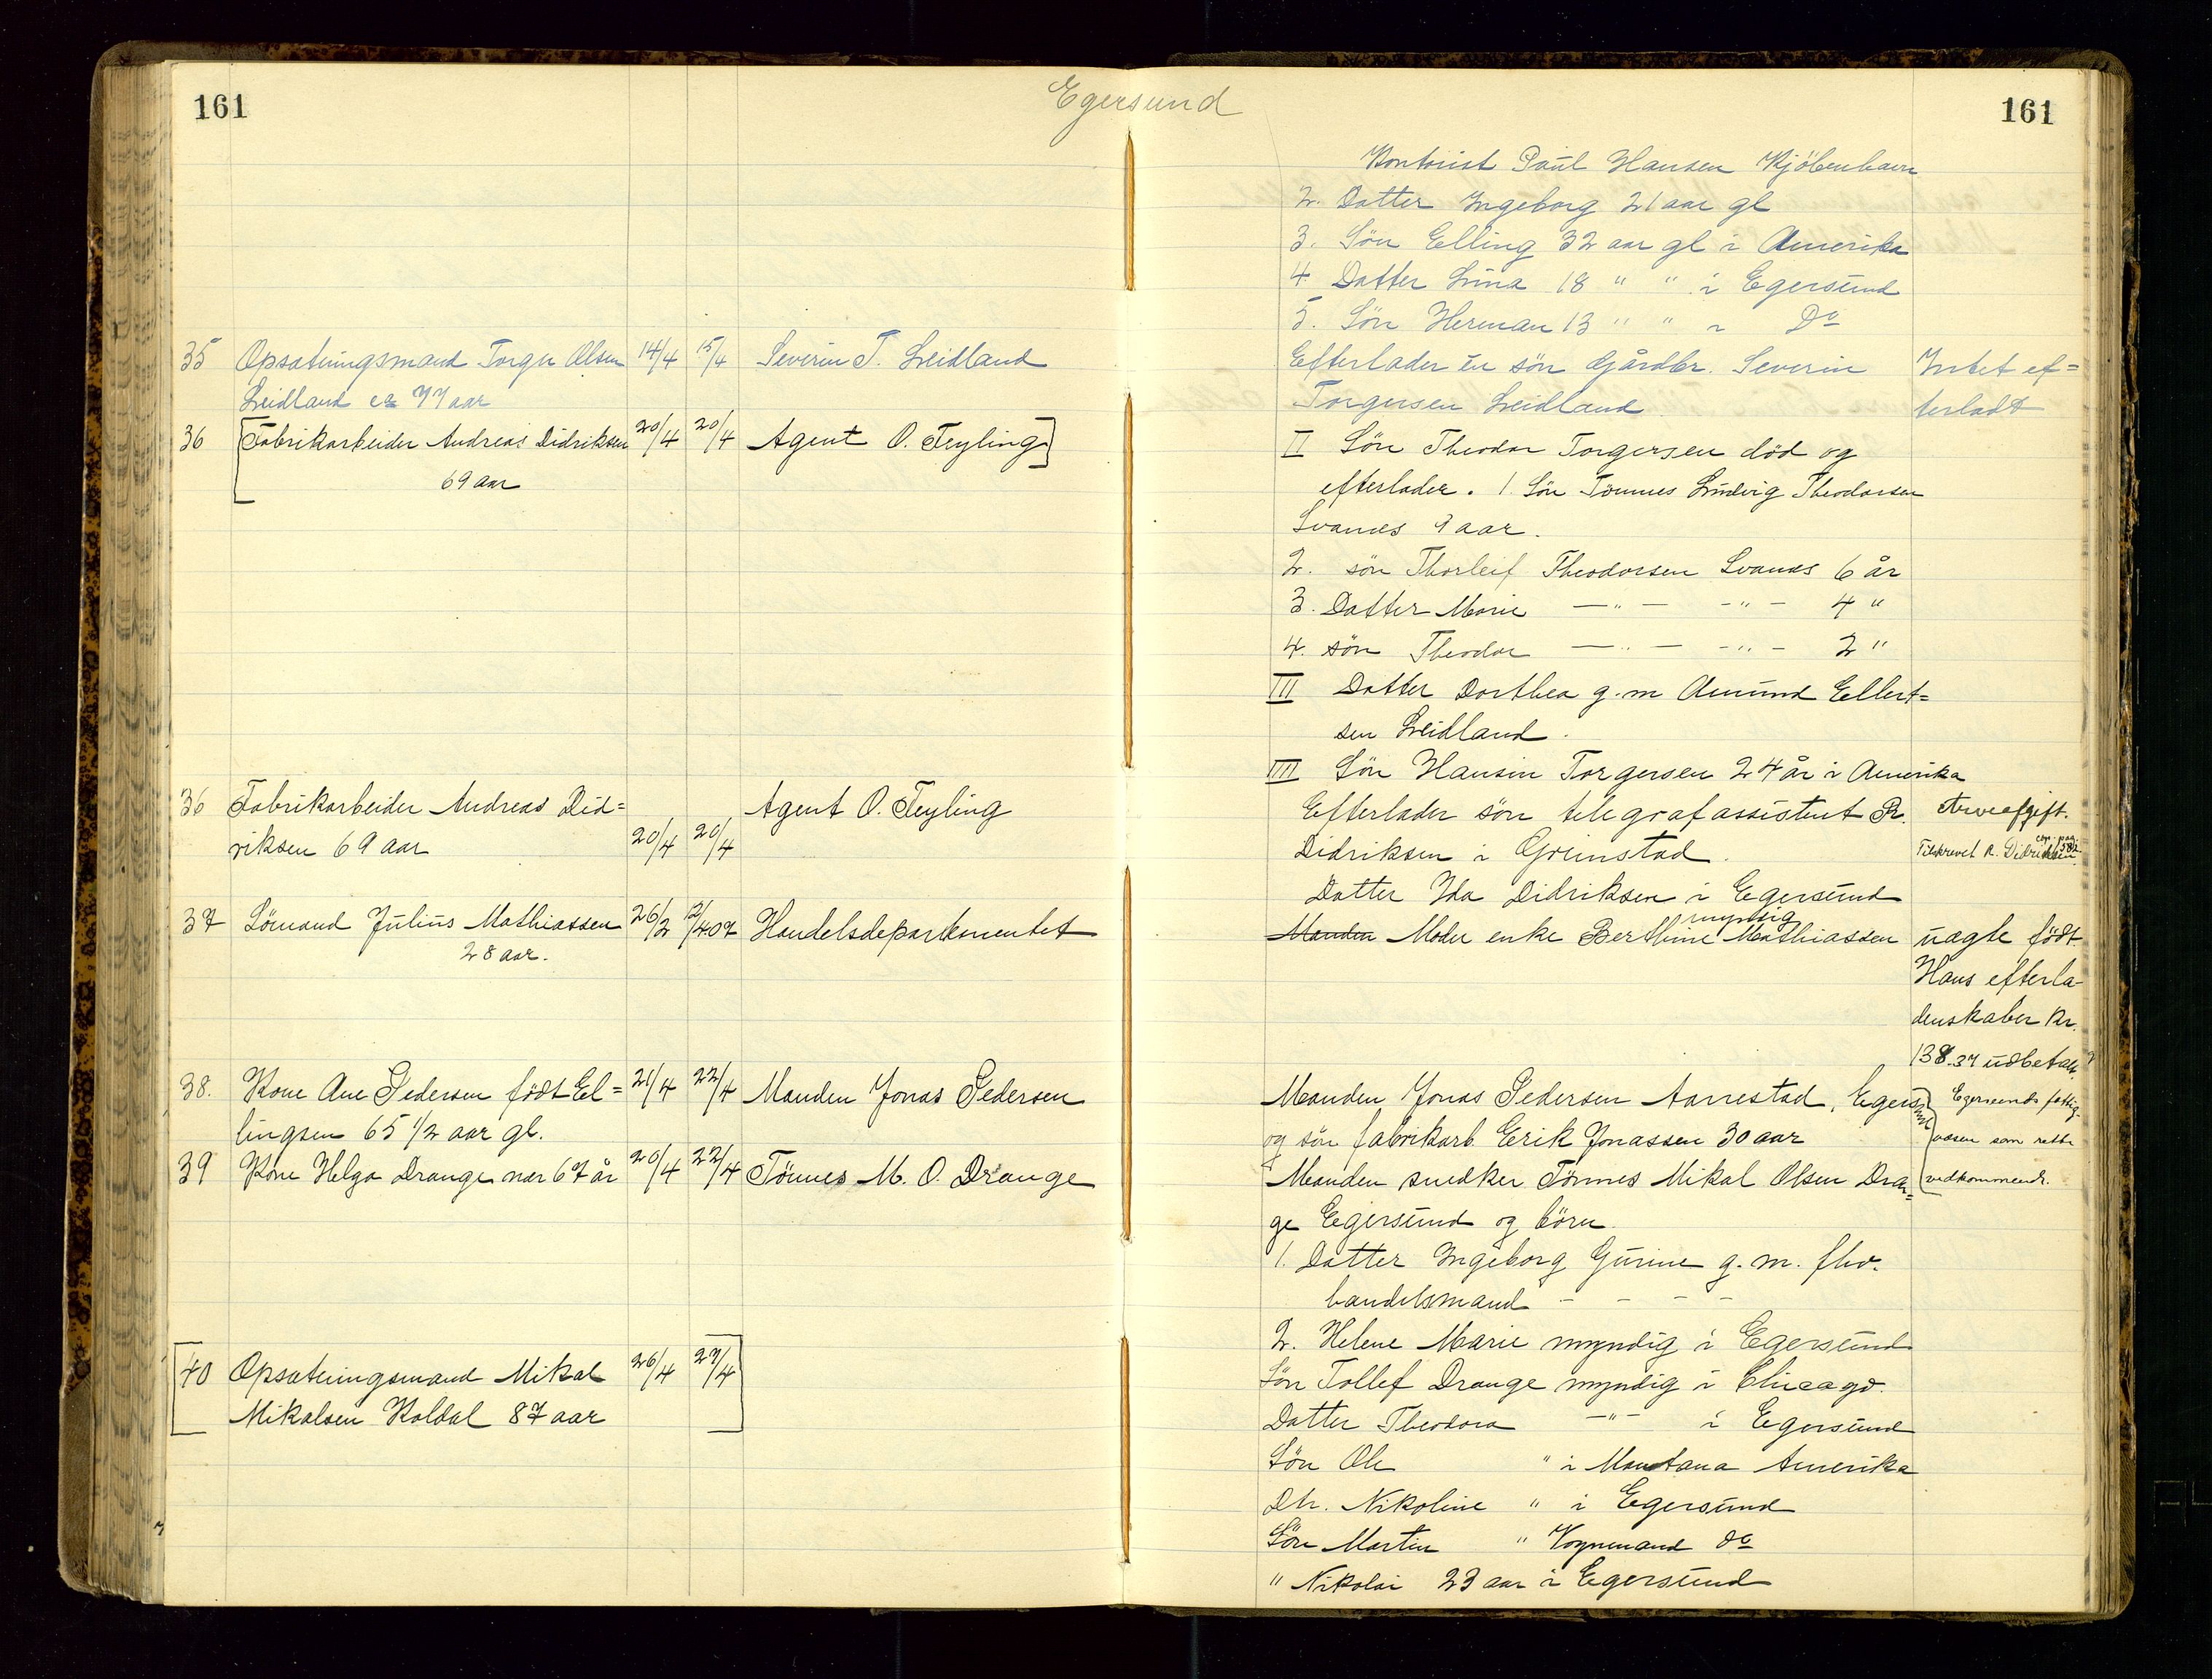 161
Egersund
161
Kontorist Paul Hansen Kjöbenhavn
2. Datter Ingeborg 21 aar gl
3. Sön Elling 32 aar gl i Amerika
4. Datter Lina 18 " " i Egersund
5. Sön Herman 13 " " " Do
35 Opsætningsmand Torger Olsen 14/4 15/4 Severin T. Leidland
Leidland ca 77 aar
Efterlader en sön Gårdbr. Severin
Torgersen Leidland.
Intet ef=
terladt
36 Fabrikarbeider Andreas Didriksen 20/4 20/4 Agent O. Feyling
69 aar
II Sön Theodor Torgersen död og
efterlader. 1. Sön Tönnes Ludvig Theodorsen
Svanes 9 aar.
2. sön Thorleif Theodorsen Svanes 6 år
3. Datter Marie —"— -"- 4 "
4. sön Theodor —"— -"- 2 "
III Datter Dorthea g. m Amund Ellert=
sen Leidland.
IIII Sön Hansin Torgersen 24 år i Amerika
36 Fabrikarbeider Andreas Did=
riksen 69 aar 20/4 20/4 Agent O. Feyling
Efterlader sön telegrafassistent R.
Didriksen i Grimstad.
Datter Ida Didriksen i Egersund
Arveafgift.
Tilskrevet R. Didriksen
37 Sömand Julius Mathiassen 26/2 12/4 07 Handelsdepartementet
28 aar.
myndig
Manden Moder enke Berthine Mathiassen
uægte födt
Hans efterla-
denskaber kr.
138.37 udbetalt
38. Kone Ane Pedersen födt El= 21/4 22/4 Manden Jonas Pedersen
lingsen 65 1/2 aar gl.
Manden Jonas Pedersen Aarrestad, Egersund
og sön fabrikarb. Erik Jonassen 30 aar
Egersunds fattig-
væsen som rette
vedkommende.
39 Kone Helga Drange nær 67 år 20/4 22/4 Tönnes M. O. Drange
Manden snedker Tönnes Mikal Olsen Dran=
ge Egersund og börn.
1. Datter Ingeborg Gurine g. m. fhv.
handelsmand - - - -
2. Helene Marie myndig i Egersund
Sön Tollef Drange myndig i Chicago.
Datter Theodora —"— i Egersund
Sön Ole " i Montana Amerika
Dtr. Nikoline " i Egersund
Sön Martin " Vognmand do
" Nikolai 23 aar i Egersund
40 Opsætningsmand Mikal 26/4 27/4
Mikalsen Koldal 87 aar